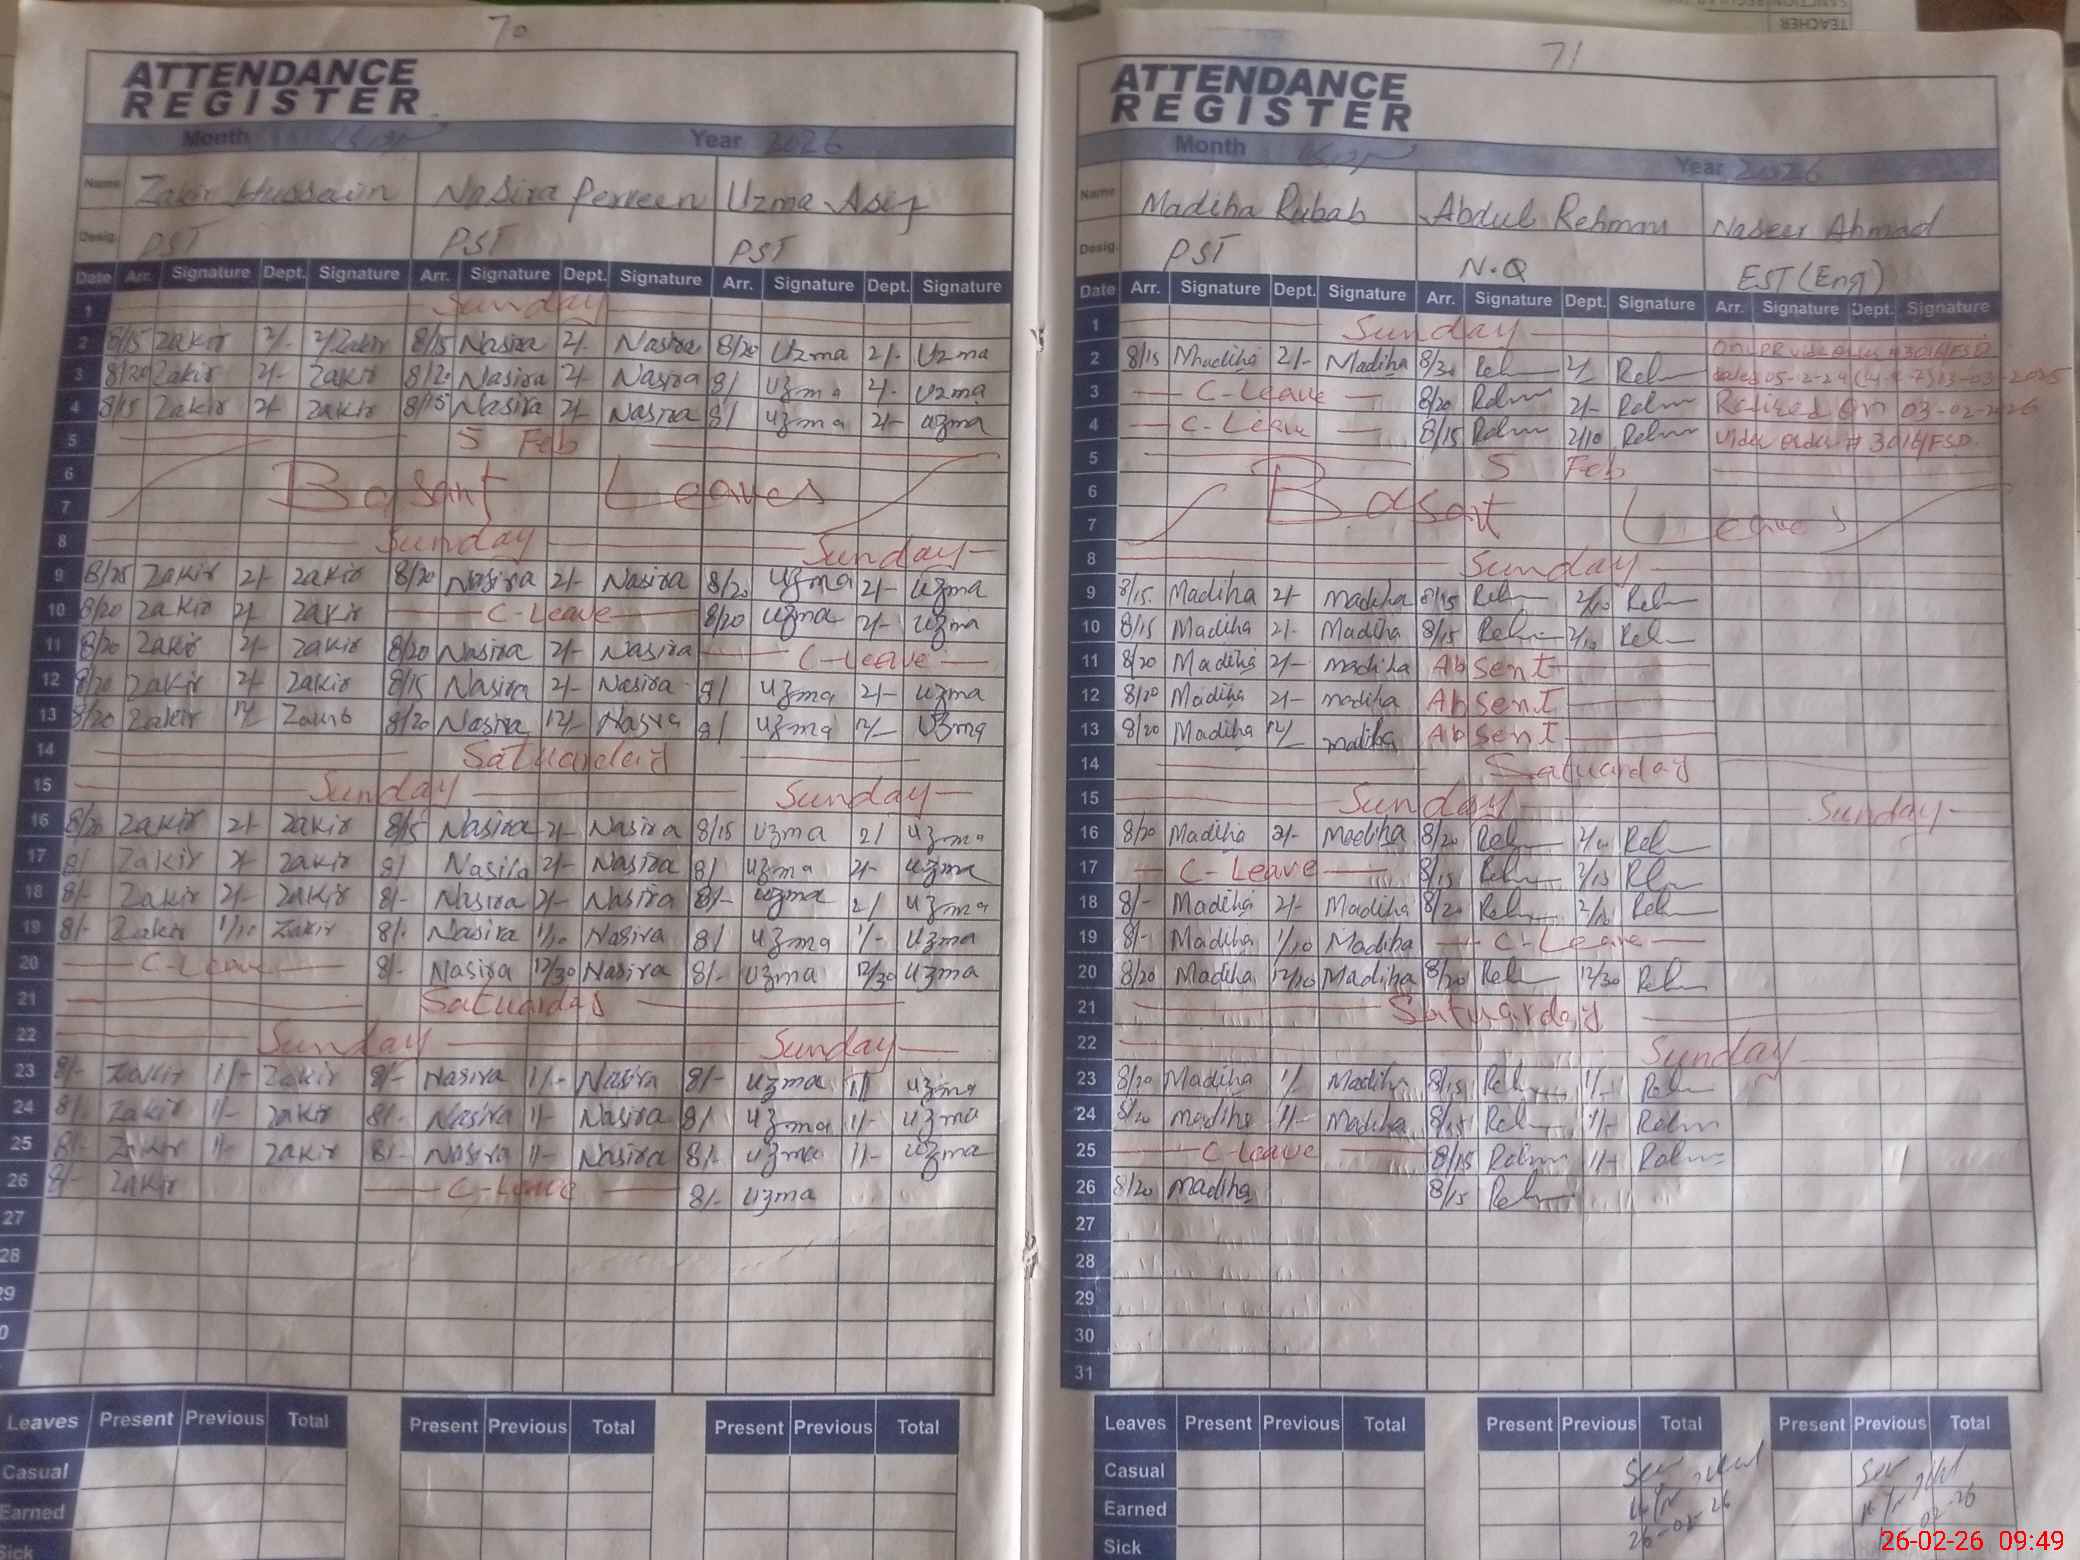 70
ATTENDANCE
REGISTER
Month Year 2026
Name Zakir Hussain Nasira Perveen Uzma Asif
Desig. PST PST PST
Date Arr. Signature Dept. Signature Arr. Signature Dept. Signature Arr. Signature Dept. Signature
1 Sunday
2 8/15 Zakir 2/- 2/Zakir 8/15 Nasira 2/- Nasira 8/20 Uzma 2/- Uzma
3 8/20 Zakir 2/- Zakir 8/20 Nasira 2/- Nasira 8/ Uzma 2/- Uzma
4 8/15 Zakir 2/- Zakir 8/15 Nasira 2/- Nasira 8/ Uzma 2/- Uzma
5 5 Feb
6 Basant Leaves
7
8 Sunday Sunday
9 8/25 Zakir 2/- Zakir 8/20 Nasira 2/- Nasira 8/20 Uzma 2/- Uzma
10 8/20 Zakir 2/- Zakir C-Leave 8/20 Uzma 2/- Uzma
11 8/20 Zakir 2/- Zakir 8/20 Nasira 2/- Nasira C-Leave
12 8/20 Zakir 2/- Zakir 8/15 Nasira 2/- Nasira 8/ Uzma 2/- Uzma
13 8/20 Zakir 12/ Zakir 8/20 Nasira 12/- Nasira 8/ Uzma 12/ Uzma
14 Satuarday
15 Sunday Sunday
16 8/20 Zakir 2/- Zakir 8/15 Nasira 2/- Nasira 8/15 Uzma 2/ Uzma
17 8/ Zakir 2/- Zakir 8/ Nasira 2/- Nasira 8/ Uzma 2/- Uzma
18 8/- Zakir 2/- Zakir 8/- Nasira 2/- Nasira 8/- Uzma 2/ Uzma
19 8/- Zakir 1/10 Zakir 8/- Nasira 1/10 Nasira 8/ Uzma 1/- Uzma
20 C-Leave 8/- Nasira 12/30 Nasira 8/- Uzma 12/30 Uzma
21 Satuarday
22 Sunday Sunday
23 8/- Zakir 1/- Zakir 8/- Nasira 1/- Nasira 8/- Uzma 1/ Uzma
24 8/- Zakir 1/- Zakir 8/- Nasira 1/- Nasira 8/ Uzma 1/- Uzma
25 8/- Zakir 1/- Zakir 8/- Nasira 1/- Nasira 8/- Uzma 1/- Uzma
26 8/- Zakir C-Leave 8/- Uzma
27
28
29
0
Leaves Present Previous Total Present Previous Total Present Previous Total
Casual
Earned
Sick
71
ATTENDANCE
REGISTER
Month Year 2026
Name Madiha Rubab Abdul Rehman Naseer Ahmad
Desig. PST N.Q EST(Eng)
Date Arr. Signature Dept. Signature Arr. Signature Dept. Signature Arr. Signature Dept. Signature
1 Sunday
2 8/15 Madiha 2/- Madiha 8/20 Rehm 2/ Rehm
3 C-Leave 8/20 Rehm 2/- Rehm Retired on 03-02-2026
4 C-Leave 8/15 Rehm 2/10 Rehm vide order # 3014/FSD.
5 5 Feb
6 Basant Leaves
7
8 Sunday
9 8/15 Madiha 2/- Madiha 8/15 Rehm 2/10 Rehm
10 8/15 Madiha 2/- Madiha 8/15 Rehm 2/10 Rehm
11 8/20 Madiha 2/- Madiha Absent
12 8/20 Madiha 2/- Madiha Absent
13 8/20 Madiha 12/ Madiha Absent
14 Satuarday
15 Sunday Sunday
16 8/20 Madiha 2/- Madiha 8/20 Rehm 2/10 Rehm
17 C-Leave 8/15 Rehm 2/15 Rehm
18 8/- Madiha 2/- Madiha 8/20 Rehm 2/10 Rehm
19 8/- Madiha 1/10 Madiha C-Leave
20 8/20 Madiha 12/10 Madiha 8/20 Rehm 12/30 Rehm
21 Satuarday
22 Sunday
23 8/20 Madiha 1/ Madiha 8/15 Rehm 1/- Rehm
24 8/20 Madiha 1/- Madiha 8/15 Rehm 1/- Rehm
25 C-Leave 8/15 Rehm 1/- Rehm
26 8/20 Madiha 8/15 Rehm
27
28
29
30
31
Leaves Present Previous Total Present Previous Total Present Previous Total
Casual
Earned
Sick
26-02-26
26-02-26 09:49